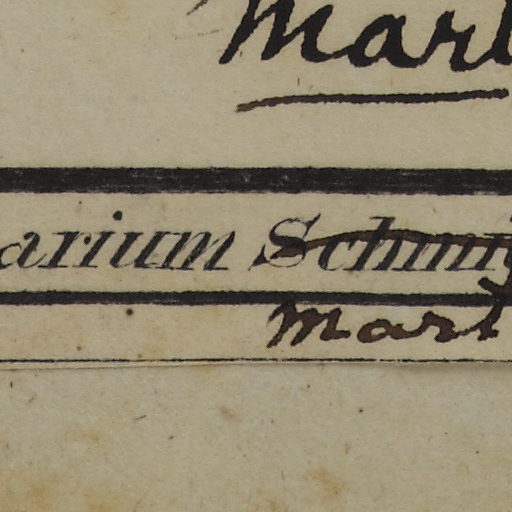 Mart
arium Schmi
Mart